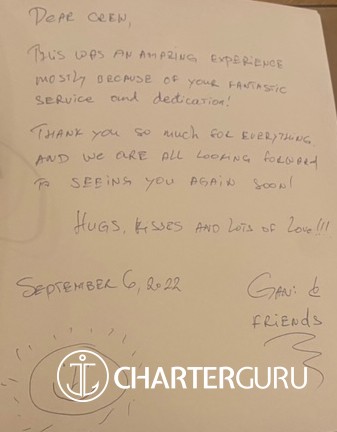 DEAR CREW,
THIS WAS AN AMAZING EXPERIENCE
MOSTLY BECAUSE OF YOUR FANTASTIC
SERVICE and DEDICATION!
THANK YOU SO MUCH FOR EVERYTHING
AND WE ARE ALL LOOKING FORWARD
TO SEEING YOU AGAIN SOON!
HUGS, KISSES AND LOTS OF LOVE!!!
SEPTEMBER 6, 2022
GANI &
FRIENDS
CHARTERGURU